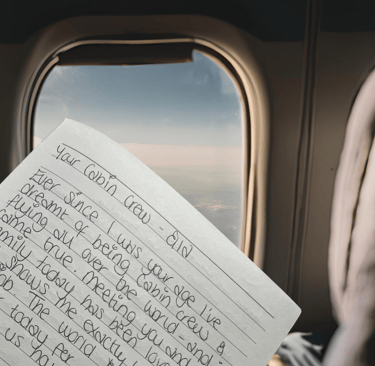 Your Cabin Crew -
Ever since I was your age I've
dreamt of being Cabin crew &
flying all over the world and
came true. Meeting you and
family today has been
shows me exactly
The world
today for
us